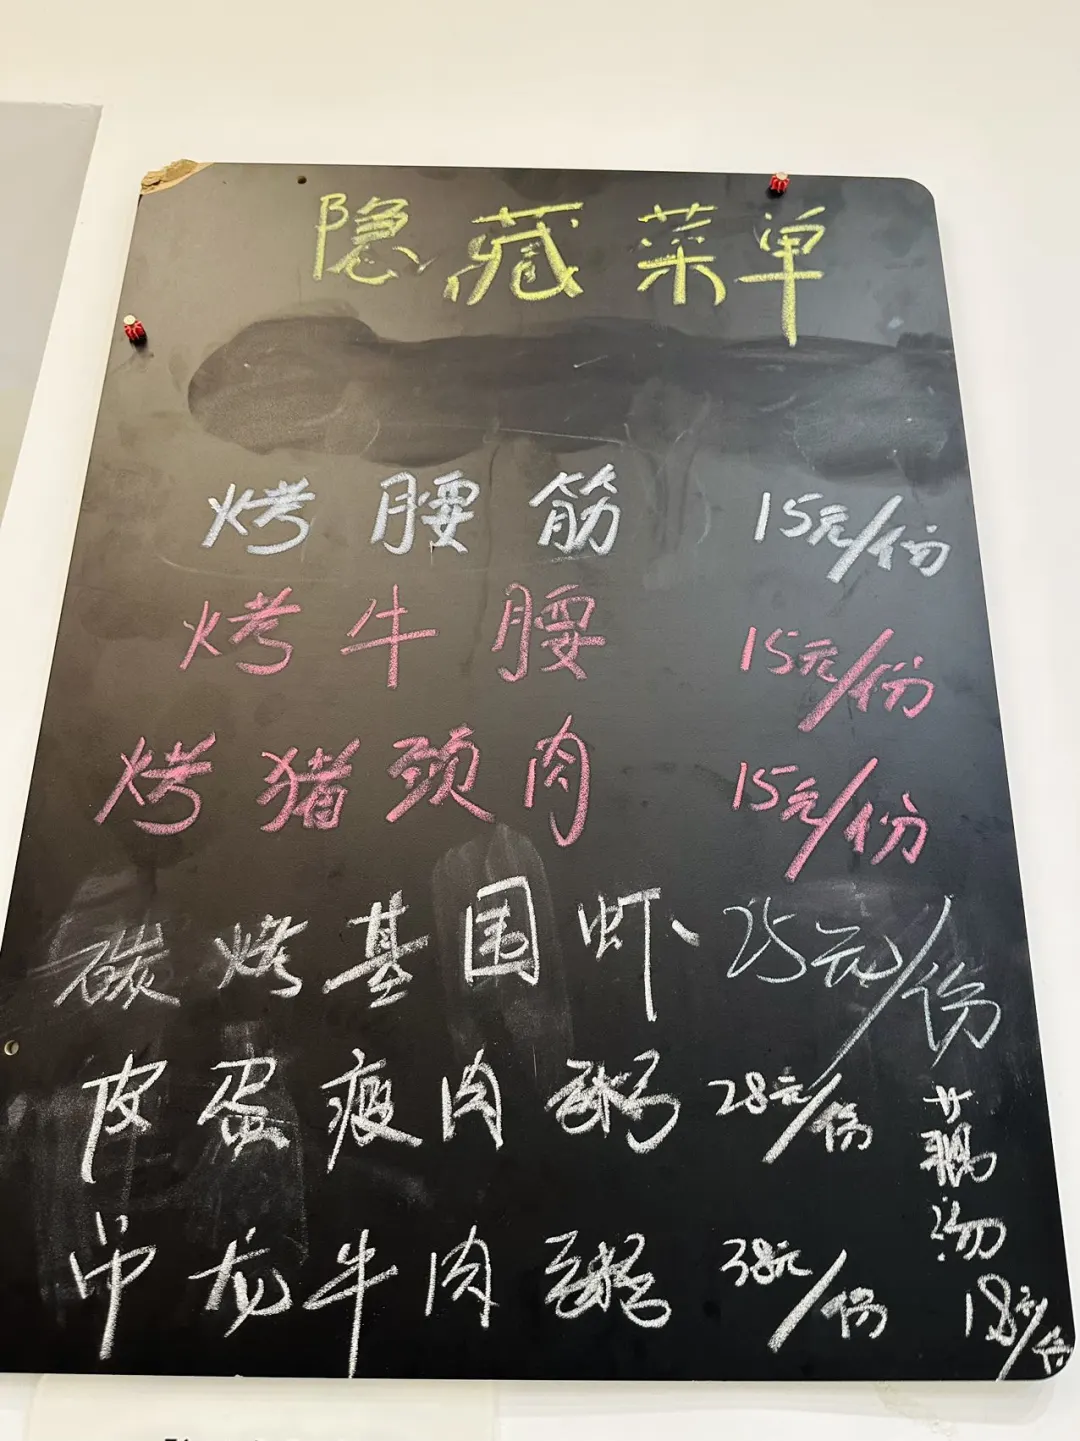 隐藏菜单
烤腰筋 15元/份
烤牛腰 15元/份
烤猪颈肉 15元/份
碳烤基围虾 25元/份
皮蛋瘦肉粥 28元/份
吊龙牛肉粥 38元/份
汤
18元/份